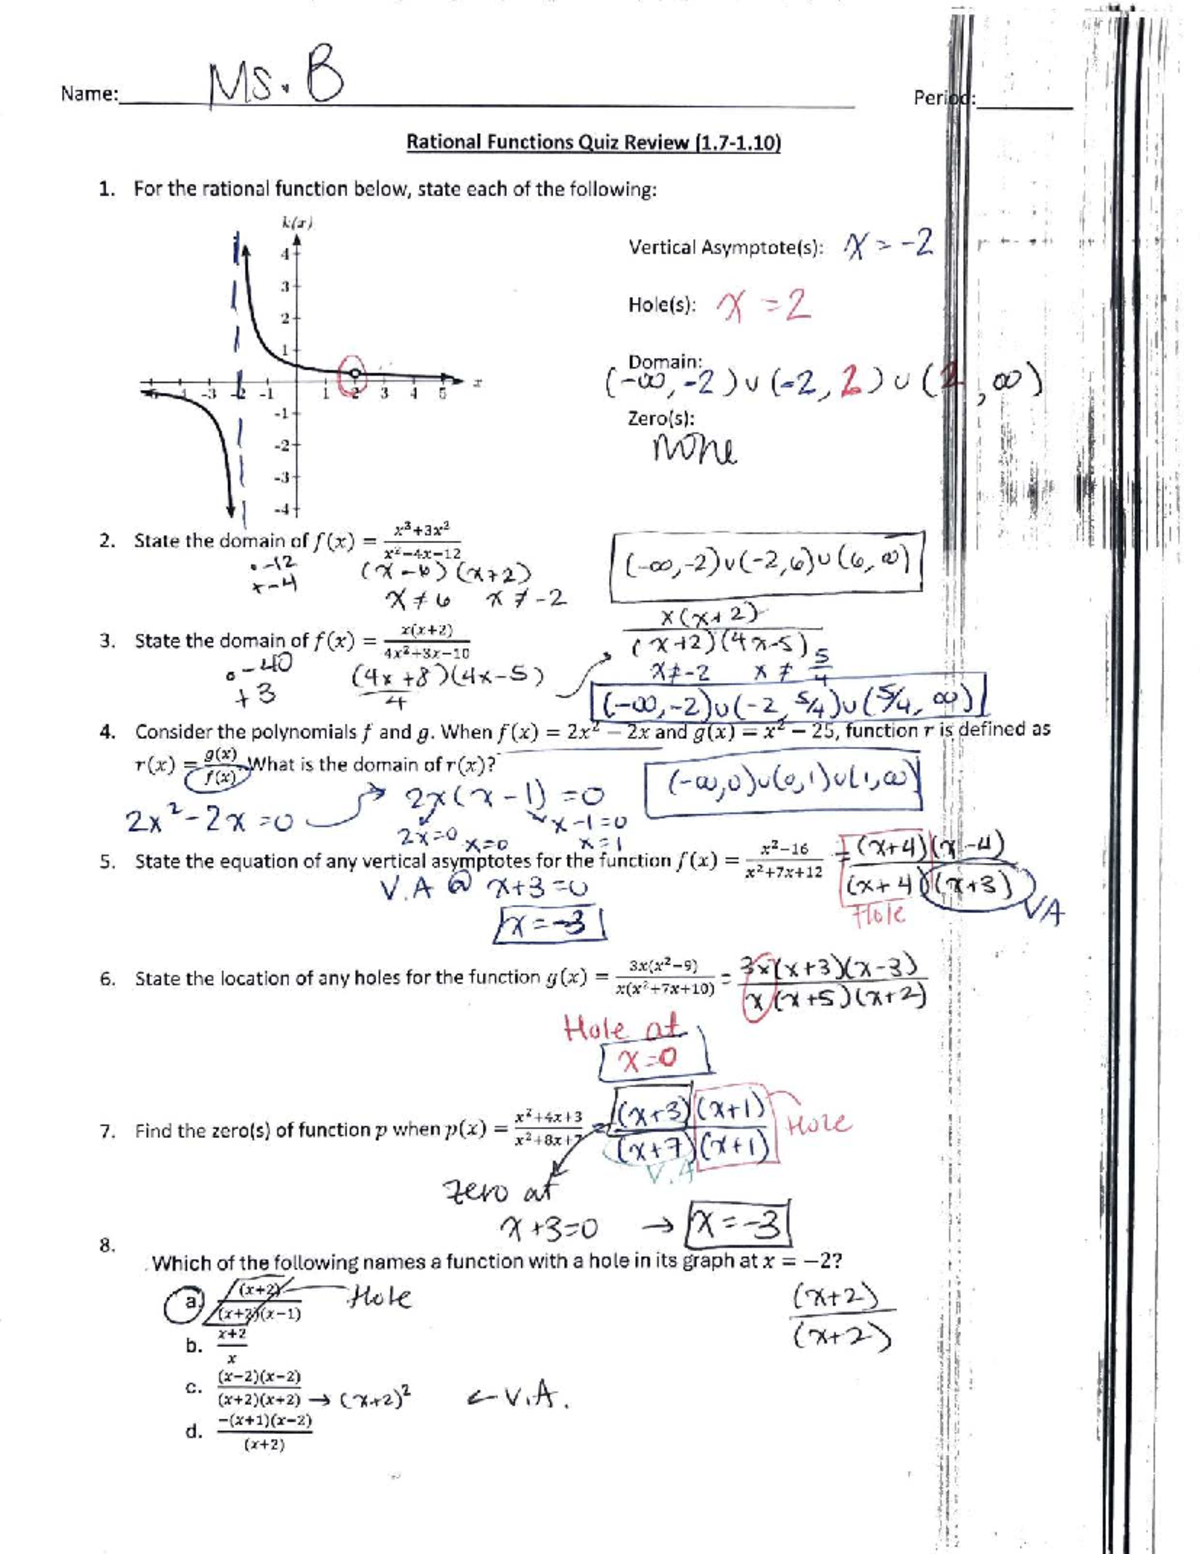 Name: Ms. B Period:
Rational Functions Quiz Review (1.7-1.10)
1. For the rational function below, state each of the following:
k(x)
Vertical Asymptote(s): x = -2
Hole(s): x = 2
Domain:
(-∞, -2) ∪ (-2, 2) ∪ (2, ∞)
Zero(s):
none
4
3
2
1
-3 -2 -1 1 2 3 4 5 x
-1
-2
-3
-4
2. State the domain of f(x) = (x³+3x²)/(x²-4x-12)
• -12
+ -4
(x-6)(x+2)
x ≠ 6 x ≠ -2
(-∞, -2) ∪ (-2, 6) ∪ (6, ∞)
3. State the domain of f(x) = x(x+2)/(4x²+3x-10)
• -40
+ 3
(4x+8)(4x-5)/4
x(x+2)/((x+2)(4x-5))
x ≠ -2 x ≠ 5/4
(-∞, -2) ∪ (-2, 5/4) ∪ (5/4, ∞)
4. Consider the polynomials f and g. When f(x) = 2x² - 2x and g(x) = x² - 25, function r is defined as
r(x) = g(x)/f(x). What is the domain of r(x)?
(-∞, 0) ∪ (0, 1) ∪ (1, ∞)
2x² - 2x = 0
2x(x-1) = 0
2x=0 x=0
x-1=0
x=1
5. State the equation of any vertical asymptotes for the function f(x) = (x²-16)/(x²+7x+12) = (x+4)(x-4)/((x+4)(x+3))
Hole
VA
V.A @ x+3=0
x=-3
6. State the location of any holes for the function g(x) = 3x(x²-9)/(x(x²+7x+10)) = 3x(x+3)(x-3)/(x(x+5)(x+2))
Hole at
x=0
7. Find the zero(s) of function p when p(x) = (x²+4x+3)/(x²+8x+7 = (x+3)(x+1)/((x+7)(x+1))
Hole
V.A
Zero at
x+3=0 → x=-3
8.
Which of the following names a function with a hole in its graph at x = −2?
a. (x+2)/((x+2)(x-1)) Hole
(x+2)/(x+2)
b. (x+2)/x
c. (x-2)(x-2)/((x+2)(x+2)) → (x+2)² ← V.A.
d. -(x+1)(x-2)/(x+2)